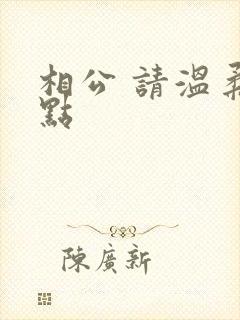 相公 請溫柔
點
陳廣新